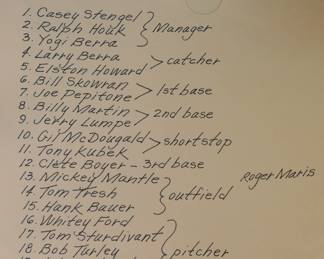 1. Casey Stengel
2. Ralph Houk } Manager
3. Yogi Berra
4. Larry Berra > catcher
5. Elston Howard
6. Bill Skowran > 1st base
7. Joe Pepitone
8. Billy Martin > 2nd base
9. Jerry Lumpe
10. Gil McDougald > shortstop
11. Tony Kubek
12. Clete Boyer - 3rd base
13. Mickey Mantle Roger Maris
14. Tom Tresh } outfield
15. Hank Bauer
16. Whitey Ford
17. Tom Sturdivant } pitcher
18. Bob Turley